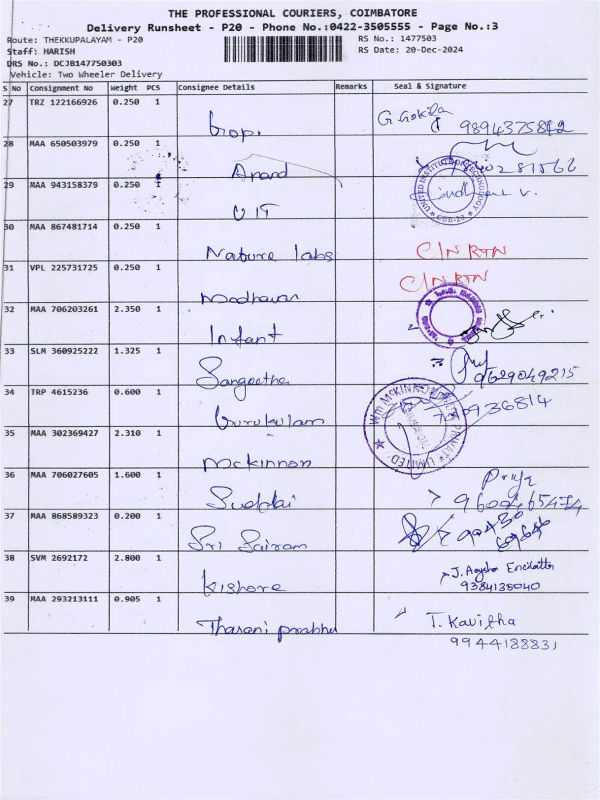 THE PROFESSIONAL COURIERS, COIMBATORE
Delivery Runsheet - P20 - Phone No.:0422-3505555 - Page No.:3
Route: THEKKUPALAYAM - P20 RS No.: 1477503
Staff: HARISH RS Date: 20-Dec-2024
DRS No.: DCJB147750303
Vehicle: Two Wheeler Delivery
S No Consignment No Weight PCS Consignee Details Remarks Seal & Signature
27 TRZ 122166926 0.250 1
Gopi G. Gokila 9894375812
28 MAA 650503979 0.250 1
Anand
29 MAA 943158379 0.250 1
UIT UNITED INSTITUTE OF TECHNOLOGY CBE-20
30 MAA 867481714 0.250 1
Nature labs C/N RTN
31 VPL 225731725 0.250 1
Madhavan C/N RTN
32 MAA 706203261 2.350 1
Infant
33 SLM 360925222 1.325 1
Sangeetha 9629049215
34 TRP 4615236 0.600 1
Gurukulam
35 MAA 302369427 2.310 1
Mckinnon PRIVATE LIMITED
36 MAA 706027605 1.600 1
Priya
9600465474
37 MAA 868589323 0.200 1
Sri Sairam 90430
38 SVM 2692172 2.800 1
Kishore J. Aaysha
9384135040
39 MAA 293213111 0.905 1
Tharani prabhu T. Kavitha
9944188831